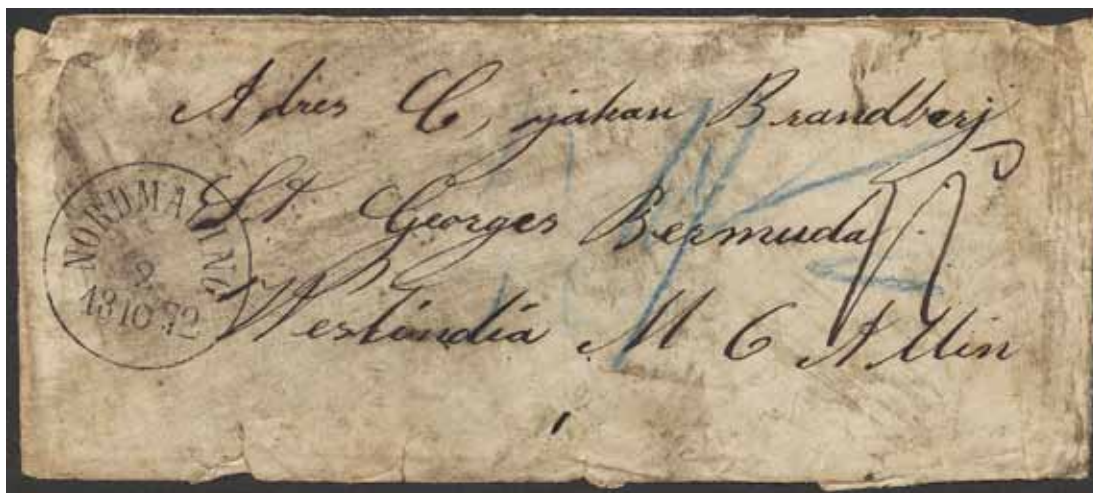 Adres C, johan Brandberj
St Georges Bermuda
Westindia M C Allin
NORDMALING
2
1810 72